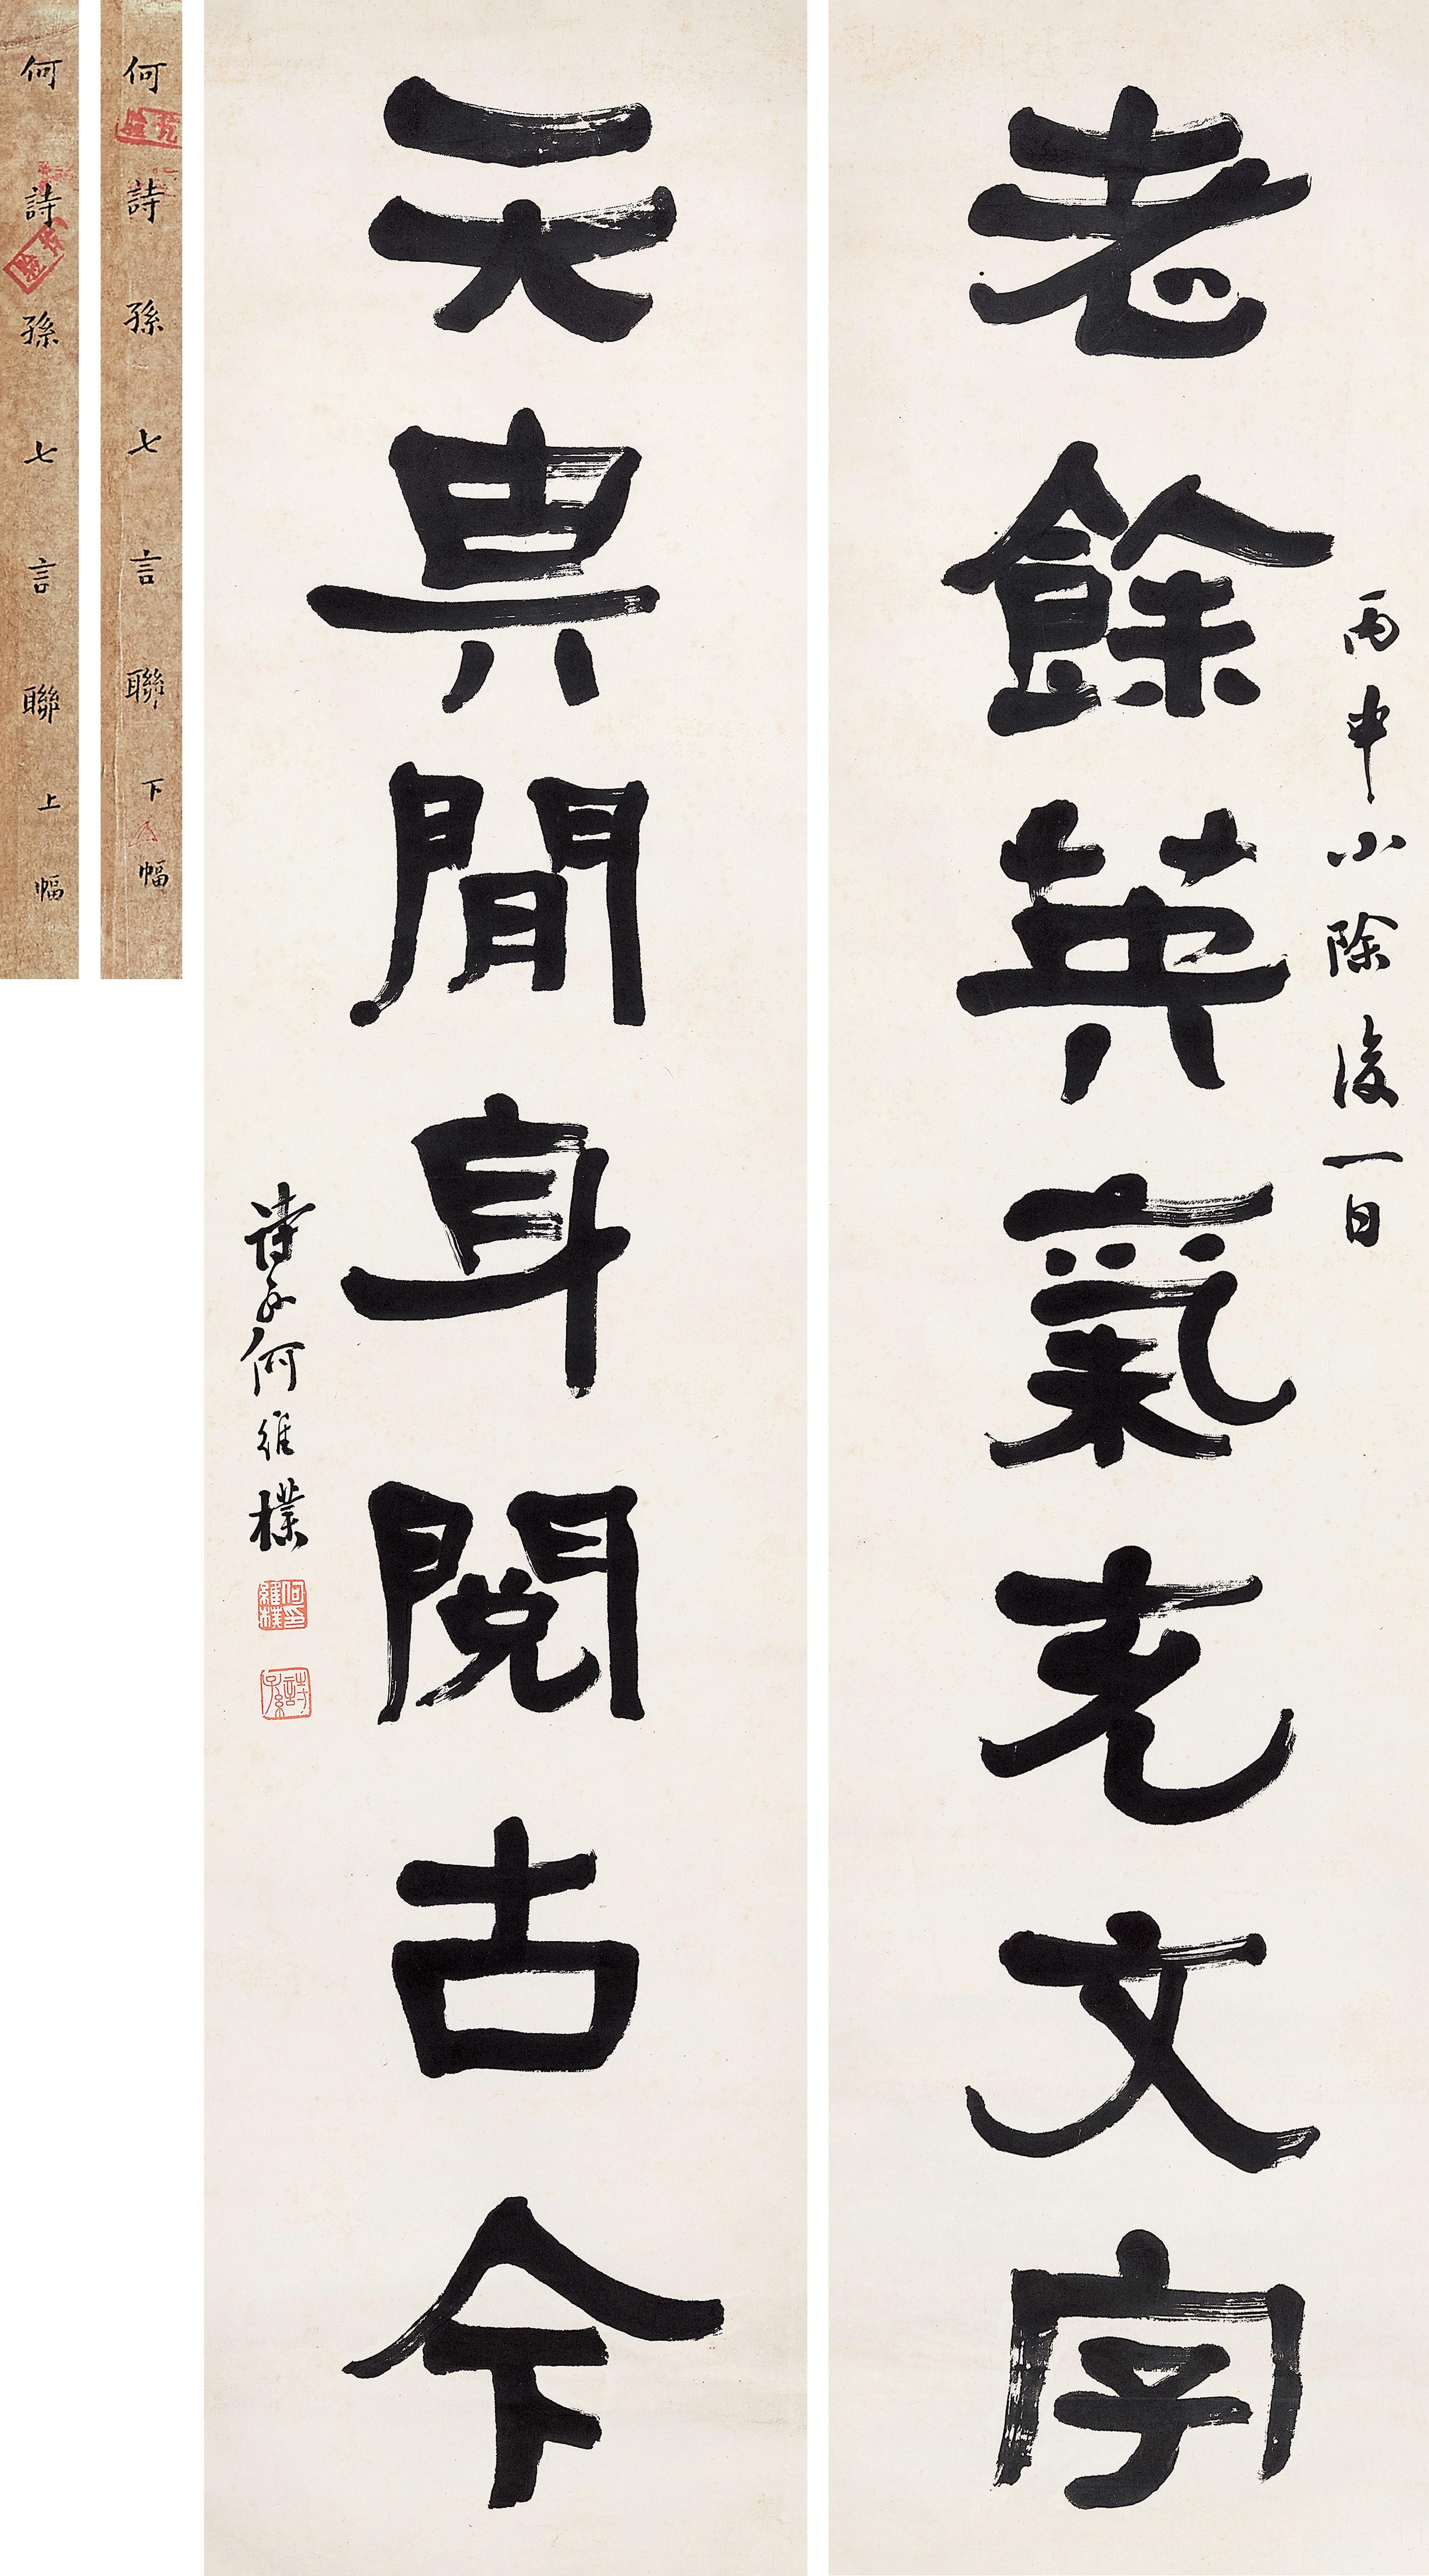 丙申小除後一日
老餘英氣充文字
天畀閒身閱古今
詩孫何維樸
何印維樸
詩孫
何詩孫七言聯下幅
何詩孫七言聯上幅